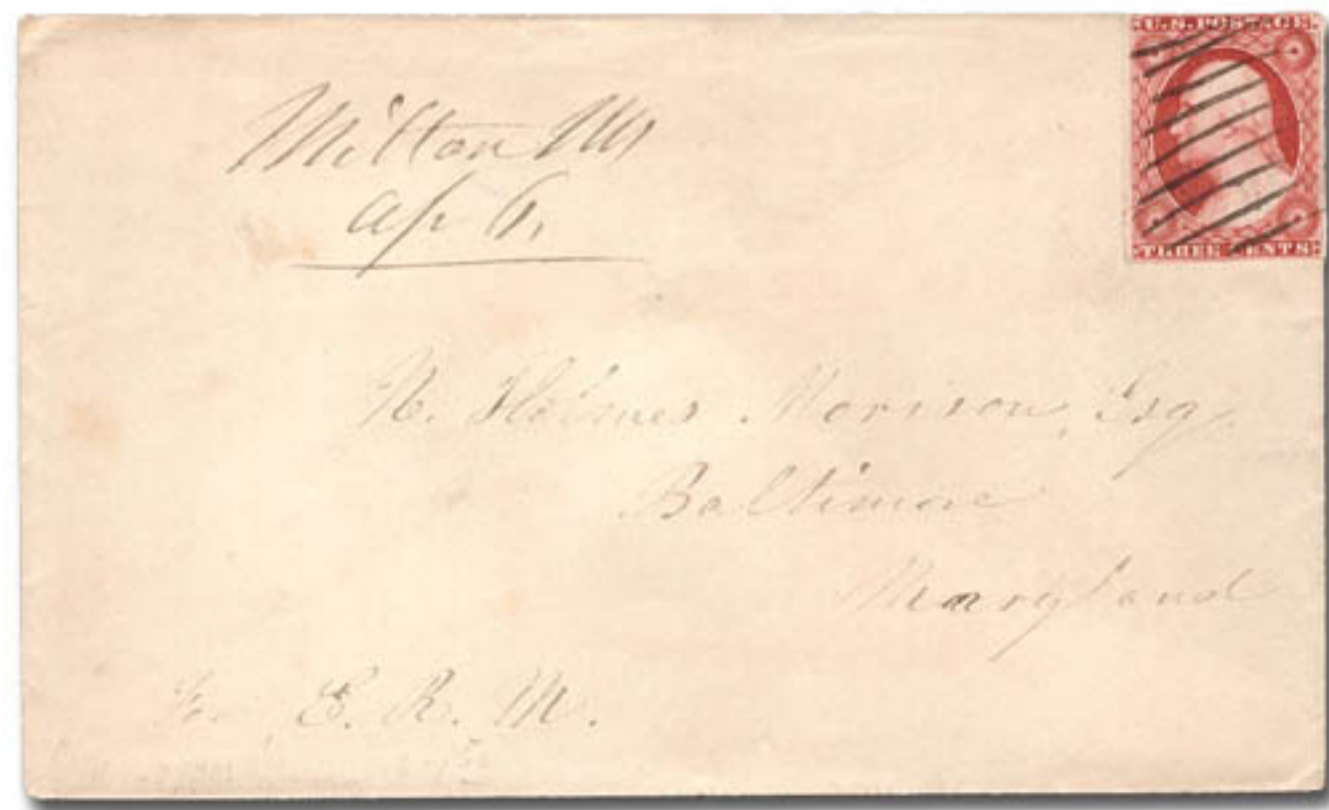 U.S. POSTAGE.
THREE CENTS.
Milton Ms
ap 6.
N. Holmes Morison, Esq.
Baltimore
Maryland
E. R. M.